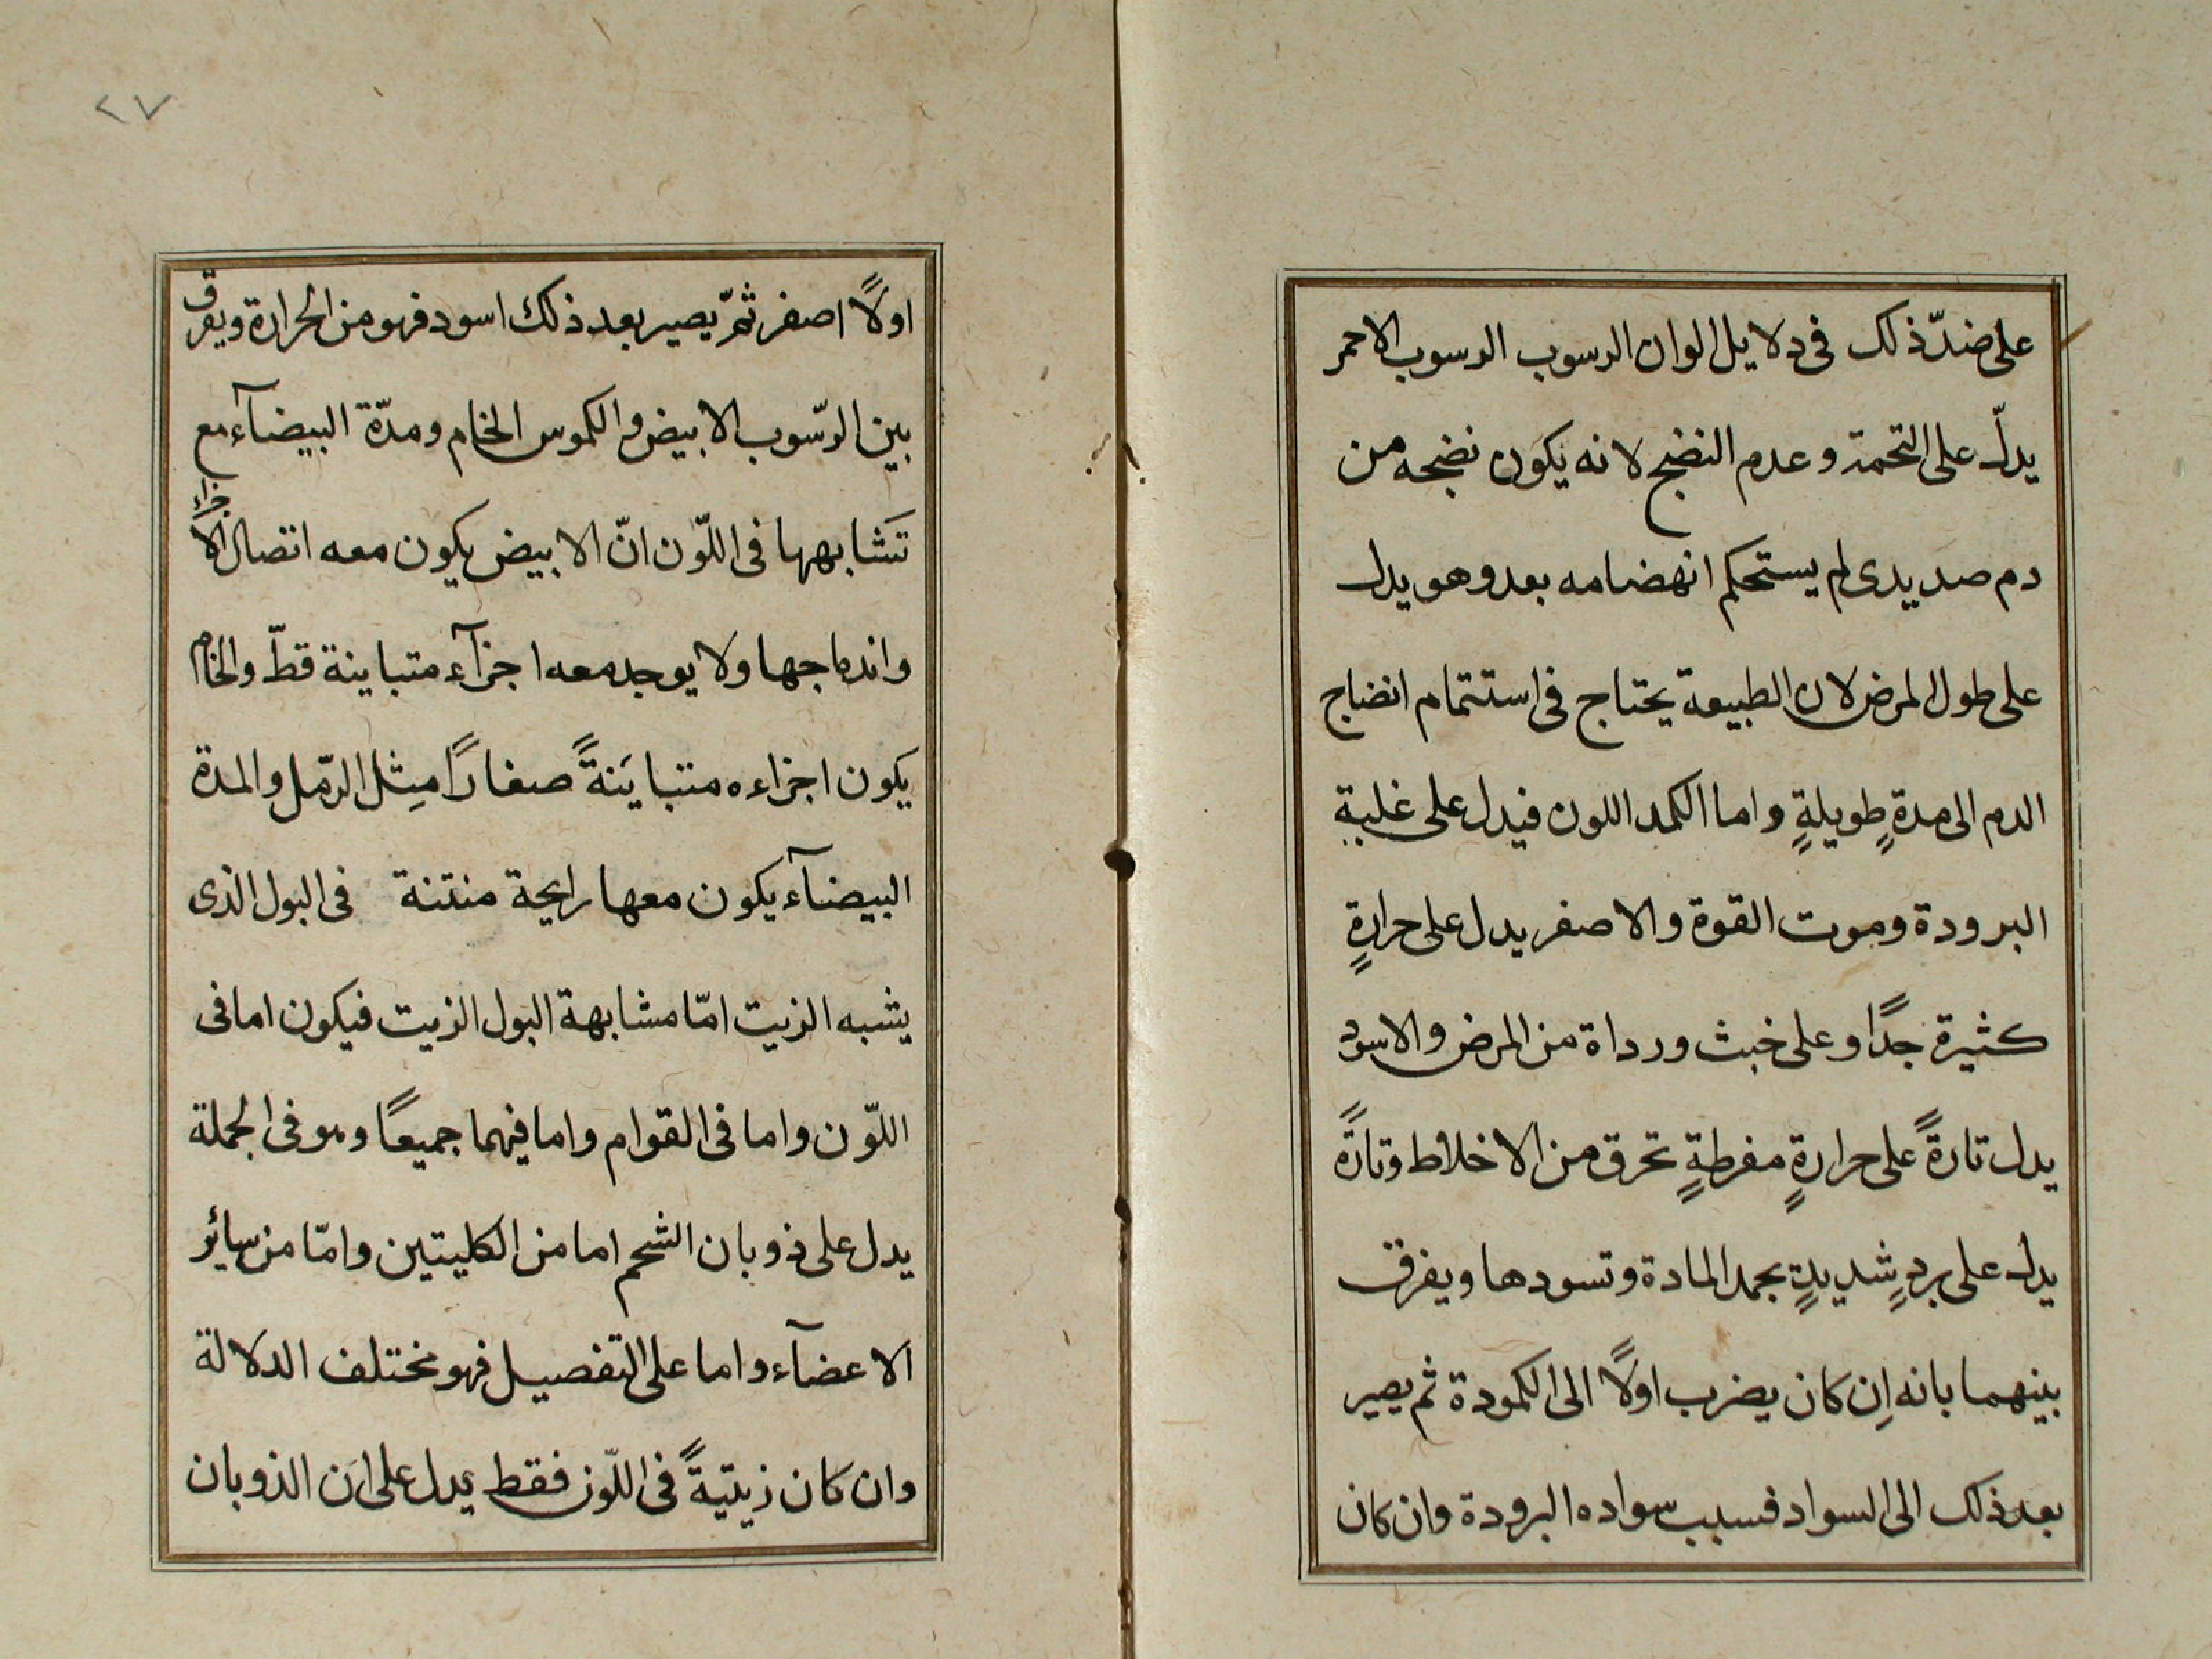 على ضدّ ذلك فى دلايل الوان الرسوب الرسوب الاحمر
يدلّ على التخمة وعدم النضج لانه يكون نضجه من
دم صديدى لم يستحكم انهضامه بعد وهو يدل
على طول المرض لان الطبيعة يحتاج فى استتمام انضاج
الدم الى مدةٍ طويلةٍ واما الكمد اللون فيدل على غلبة
البرودة وموت القوة والاصفر يدل على حرارةٍ
كثيرة جدًا وعلى خبث ورداة من المرض والاسود
يدل تارةً على حرارةٍ مفرطةٍ تحرق من الاخلاط وتارةً
يدل على بردٍ شديدٍ يجمد المادة وتسودها ويفرق
بينهما بانه اِن كان يضرب اولًا الى الكمودة ثم يصير
بعد ذلك الى السواد فسبب سواده البرودة وان كان
٢٧
اولًا اصفر ثمّ يصير بعد ذلك اسود فهو من الحرارة ويفرق
بين الرّسوب الابيض والكموس الخام ومدّة البيضآء مع
تَشَابهها فى اللّون انّ الابيض يكون معه اتصال الاجزاء
واندماجها ولا يوجد معه اجزآء متباينة قطّ والخام
يكون اجزاءه متبايَنةً صغارًا مِثل الرّمل والمدة
البيضآء يكون معها رايحة منتنة فى البول الذى
يشبه الزيت امّا مشابهة البول الزيت فيكون اما فى
اللّون واما فى القوام واما فيهما جميعًا وهو فى الجملة
يدل على ذوبان الشحم اما من الكليتين وامّا من سائر
الاعضآء واما على التفصيل فهو مختلف الدلالة
وان كان زيتيةً فى اللّون فقط يدل على اَن الذوبان